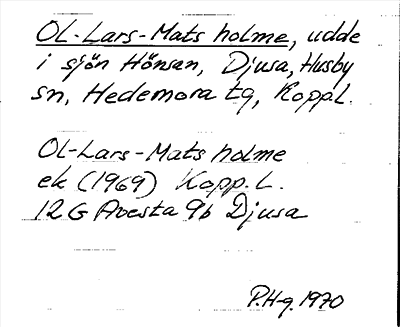 OL-Lars-Mats holme, udde
i sjön Hönsan, Djusa, Husby
sn, Hedemora tg, Koppl.
Ol-Lars-Mats holme
ek (1969) Kopp.L.
12G Avesta 9b Djusa
P.H-g. 1970